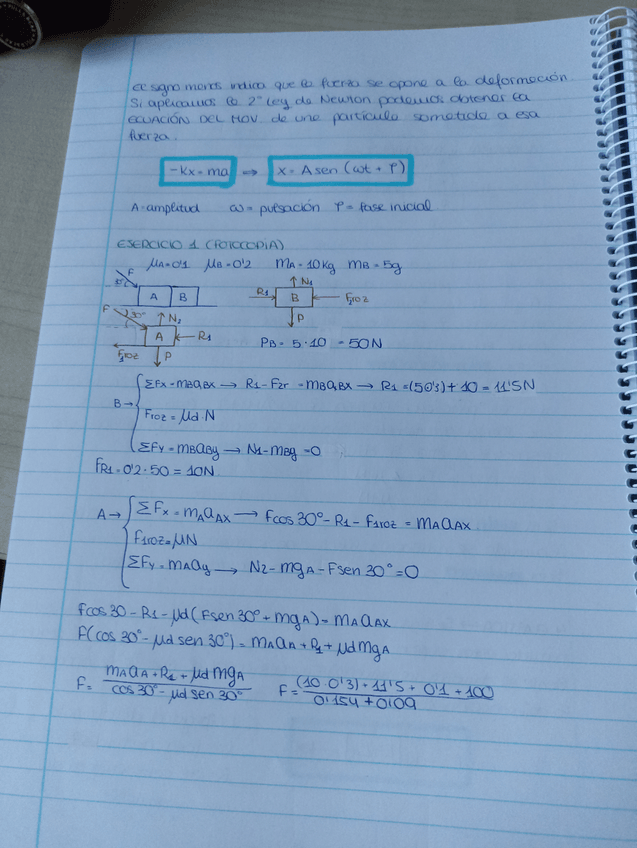 El signo menos indica que la fuerza se opone a la deformación
Si aplicamos la 2ª Ley de Newton podemos obtener la
ECUACIÓN DEL MOV. de una partícula sometida a esa
fuerza.
-Kx = ma ⇒ x = A sen (ωt + φ)
A = amplitud ω = pulsación φ = fase inicial
EJERCICIO 1 (FOTOCOPIA)
μA=0'1 μB=0'2 mA=10Kg mB=5g
F 30° A B
R1 N1 B Froz P
F 30° N2 A R1 Froz P
PB = 5·10 = 50N
B → ΣFx = mBaBx → R1 - F2r = mBaBx → R1 = (5·0'3) + 10 = 11'5N
Froz = μd·N
ΣFy = mBaBy → N1 - mBg = 0
FR1 = 0'2·50 = 10N
A → ΣFx = mAaAx → Fcos30° - R1 - F1roz = mAaAx
F1roz = μN
ΣFy = mAay → N2 - mgA - Fsen30° = 0
Fcos30 - R1 - μd(Fsen30° + mgA) = mAaAx
F(cos30° - μd sen30°) = mAaA + R1 + μdmgA
F = (mAaA + R1 + μdmgA) / (cos30° - μd sen30°) F = ((10·0'3) + 11'5 + 0'1 + 100) / (0'154 + 0'09)